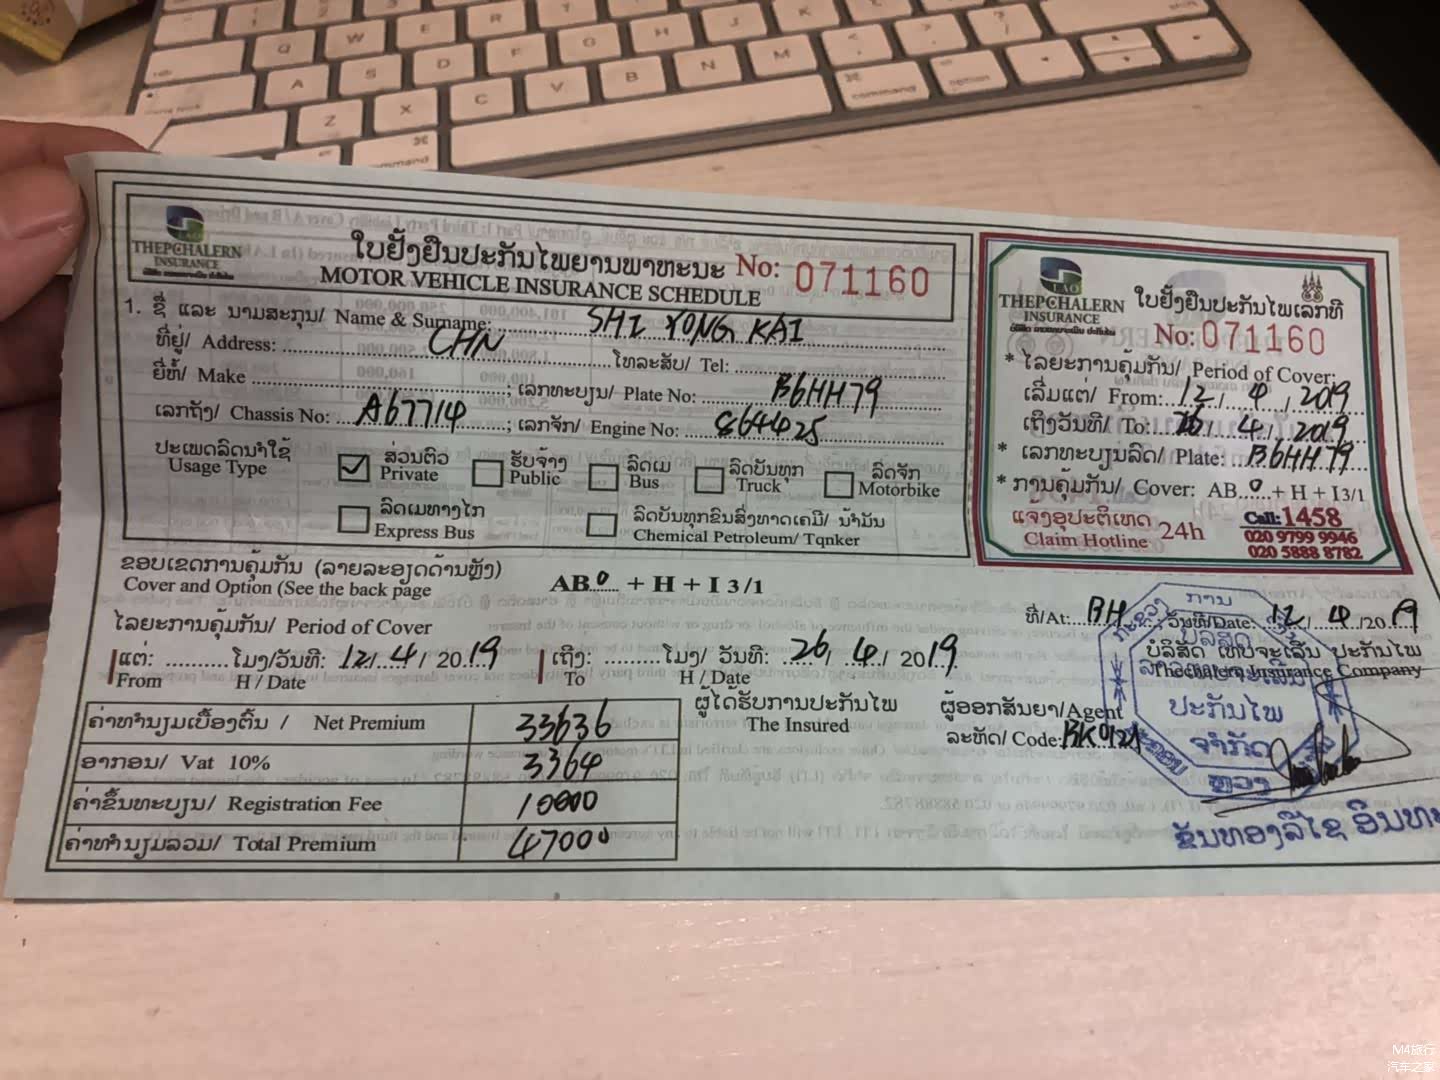 LAO
THEPCHALERN
INSURANCE
ໃບຢັ້ງຢືນປະກັນໄພຍານພາຫະນະ No: 071160
MOTOR VEHICLE INSURANCE SCHEDULE
1. ຊື່ ແລະ ນາມສະກຸນ/ Name & Surname: SHI YONG KAI
ທີ່ຢູ່/ Address: CHN ໂທລະສັບ/ Tel:
ຍີ່ຫໍ້/ Make ; ເລກທະບຽນ/ Plate No: B6HH79
ເລກຖັງ/ Chassis No: A67714 ; ເລກຈັກ/ Engine No: 864425
ປະເພດລົດນຳໃຊ້
Usage Type
ສ່ວນຕົວ
Private
ຮັບຈ້າງ
Public
ລົດເມ
Bus
ລົດບັນທຸກ
Truck
ລົດຈັກ
Motorbike
ລົດເມທາງໄກ
Express Bus
ລົດບັນທຸກຂົນສົ່ງທາດເຄມີ/ ນ້ຳມັນ
Chemical Petroleum/ Tqnker
ຂອບເຂດການຄຸ້ມກັນ (ລາຍລະອຽດດ້ານຫຼັງ)
Cover and Option (See the back page
AB 0 + H + I 3/1
ໄລຍະການຄຸ້ມກັນ/ Period of Cover
ແຕ່: ໂມງ/ວັນທີ: 12/ 4/ 2019
From H / Date
ເຖິງ: ໂມງ/ ວັນທີ: 26/ 4/ 2019
To H / Date
ຄ່າທຳນຽມເບື້ອງຕົ້ນ / Net Premium 33636
ອາກອນ/ Vat 10% 3364
ຄ່າຂຶ້ນທະບຽນ/ Registration Fee 10000
ຄ່າທຳນຽມລວມ/ Total Premium 47000
ຜູ້ໄດ້ຮັບການປະກັນໄພ
The Insured
ຜູ້ອອກສັນຍາ/Agent
ລະຫັດ/ Code:
ທີ່/At: BH ວັນທີ/Date: 12/ 4/2019
ບໍລິສັດ ເທບຈະເລີນ ປະກັນໄພ
Thechalern Insurance Company
ບໍລິສັດ
ປະກັນໄພ
ຈຳກັດ
LAO
THEPCHALERN
INSURANCE
ໃບຢັ້ງຢືນປະກັນໄພເລກທີ
No: 071160
* ໄລຍະການຄຸ້ມກັນ/ Period of Cover:
ເລີ່ມແຕ່/ From: 12/ 4/ 2019
ເຖິງວັນທີ/ To: 26/ 4/ 2019
* ເລກທະບຽນລົດ/ Plate: B6HH79
* ການຄຸ້ມກັນ/ Cover: AB 0 + H + I 3/1
ແຈ້ງອຸປະຕິເຫດ 24h
Claim Hotline
Call: 1458
020 9799 9946
020 5888 8782
M4旅行
汽车之家